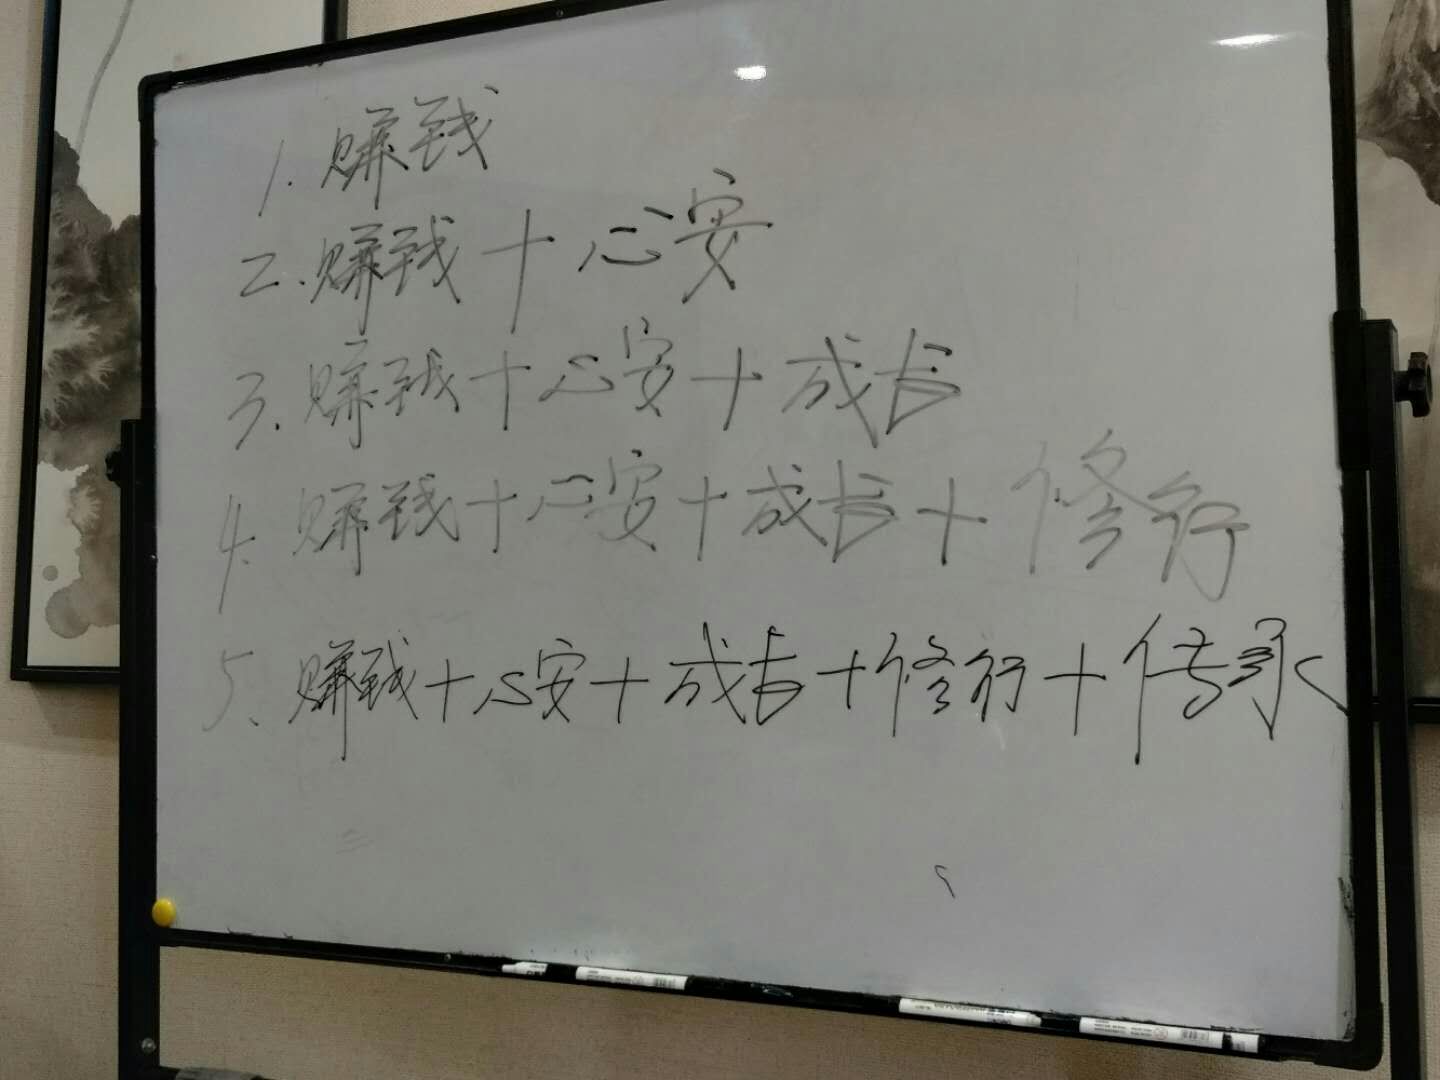 1. 赚钱
2. 赚钱+心安
3. 赚钱+心安+成长
4. 赚钱+心安+成长+修行
5、赚钱+心安+成长+修行+传承